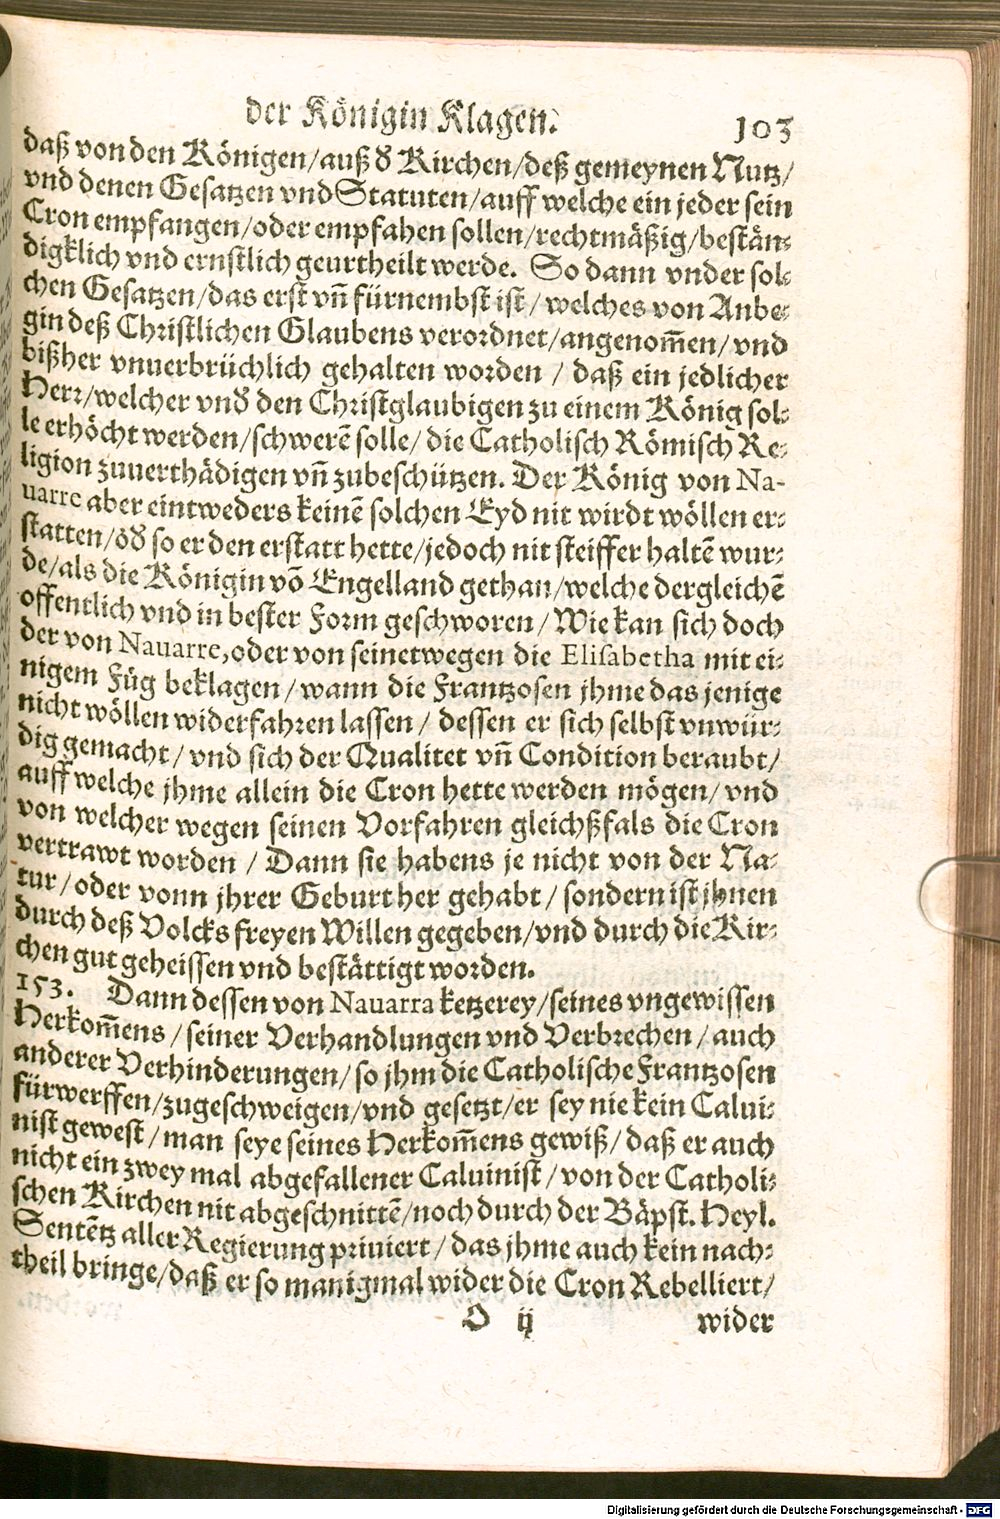 der Königin Klagen.
103
daß von den Königen/auß ď Kirchen/deß gemeynen Nutz/
vnd denen Gesatzen vnd Statuten/auff welche ein jeder sein
Cron empfangen/oder empfahen sollen/rechtmäßig/bestän-
digklich vnd ernstlich geurtheilt werde. So dann vnder sol-
chen Gesatzen/das erst vñ fürnembst ist/welches von Anbe-
gin deß Christlichen Glaubens verordnet/angenom̃en/vnd
bißher vnuerbrüchlich gehalten worden / daß ein jedlicher
Herr/welcher vnď den Christglaubigen zu einem König sol-
le erhöcht werden/schwerẽ solle/ die Catholisch Römisch Re-
ligion zuuerthädigen vñ zubeschützen. Der König von Na-
uarre aber eintweders keinẽ solchen Eyd nit wirdt wöllen er-
statten/oď so er den erstatt hette/jedoch nit steiffer haltẽ wur-
de/als die Königin võ Engelland gethan/welche dergleichẽ
offentlich vnd in bester Form geschworen/ Wie kan sich doch
der von Nauarre,oder von seinetwegen die Elisabetha mit ei-
nigem Fůg beklagen/wann die Frantzosen jhme das jenige
nicht wöllen widerfahren lassen/ dessen er sich selbst vnwür-
dig gemacht/ vnd sich der Qualitet vñ Condition beraubt/
auff welche jhme allein die Cron hette werden mögen/ vnd
von welcher wegen seinen Vorfahren gleichßfals die Cron
vertrawt worden / Dann sie habens je nicht von der Na-
tur/oder vonn jhrer Geburt her gehabt/ sondern ist jhnen
durch deß Volcks freyen Willen gegeben/vnd durch die Kir-
chen gut geheissen vnd bestättigt worden.
153. Dann dessen von Nauarra ketzerey/seines vngewissen
Herkom̃ens/seiner Verhandlungen vnd Verbrechen/auch
anderer Verhinderungen/so jhm die Catholische Frantzosen
fürwerffen/zugeschweigen/vnd gesetzt/er sey nie kein Calui-
nist gewest/man seye seines Herkom̃ens gewiß/daß er auch
nicht ein zwey mal abgefallener Caluinist/von der Catholi-
schen Kirchen nit abgeschnittẽ/noch durch der Bäpst. Heyl.
Sentẽtz aller Regierung priuiert/ das jhme auch kein nach-
theil bringe/daß er so manigmal wider die Cron Rebelliert/
O ij
wider
Digitalisierung gefördert durch die Deutsche Forschungsgemeinschaft - DFG